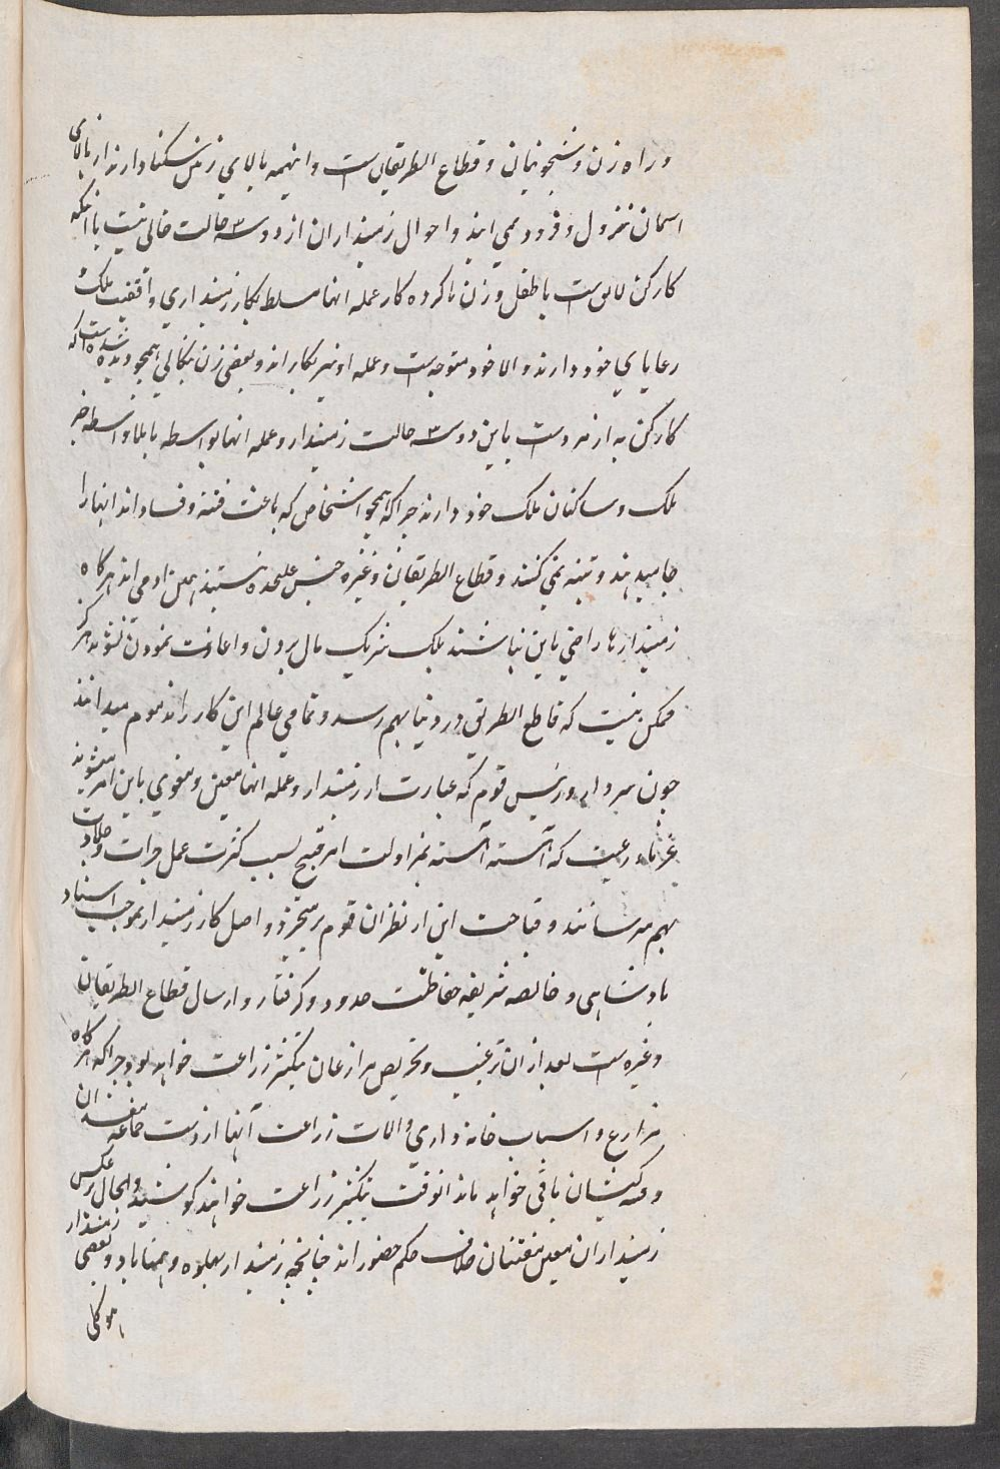 و راه زن و شبخونیان و قطاع الطریقان ست و اینهمه بالای زمین سکنا دارند از بالای
اسمان نزول و فرود نمی ایند و احوال زمینداران از دو سه حالت خالی نیست با انکه
کارکن لایق ست یا طفل و زن ناکرده کار عمله انها مسلط بکار زمینداری واقفیت ملک
رعایای خود دارند و الا خود متوجه ست و عمله او نیز بکار اند و بعضی زن بنگالی همچو دیده شده است که
کارکن به از مردست باین دو سه حالت زمیندار و عمله انها بواسطه یا بلا واسطه خبر
ملک و ساکنان ملک خود دارند چرا که همچو اشخاص که باعث فتنه و فساد اند انها را
جا میدهند و تنبه نمی کنند و قطاع الطریقان وغیره جنس علیحده نیستند همین ادمی اند هر گاه
زمیندارها راضی باین نباشند بلکه شریک مال بردن و اعانت نمودن نشوند هرگز
ممکن نیست که قاطع الطریق در دنیا بهم رسد و تمامی عالم این کار را مذموم میدانند
چون سردار و رئیس قوم که عبارت از زمیندار و عمله انها معین و مغوی باین امر میشوند
غرباء رعیت که آهسته آهسته بمزاولت امر قبیح بسبب کثرت عمل جرات و جلادت
بهم میرسانند و قباحت این از نظر ان قوم بر میخیزد و اصل کار زمیندار بموجب اسناد
بادشاهی و خالصه شریفه حفاظت حدود و گرفتار و ارسال قطاع الطریقان
وغیره ست بعد از ان ترغیب و تحریص مزارعان بتکثیر زراعت خواهد بود چرا که هر گاه
مزارع و اسباب خانه داری و الات زراعت آنها از دست جماعه مفسدان
و فتنه کیشان باقی خواهد ماند انوقت بتکثیر زراعت خواهند کوشید و الحال بر عکس
زمینداران معین مفتنان خلاف حکم حضور اند چنانچه زمیندار و بعضی زمیندار